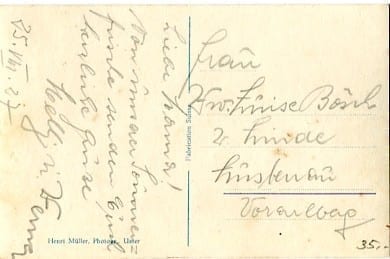 25. VIII. 27
Liebe Mama!
Von unserer Sommer=
frische senden Euch
herzliche Grüsse
Hedy u.
Frau
Wwe. Luise Bösch
z. Linde
Lustenau
Vorarlberg
Fabrication Suisse
Henri Müller, Photogr., Uster
35.-